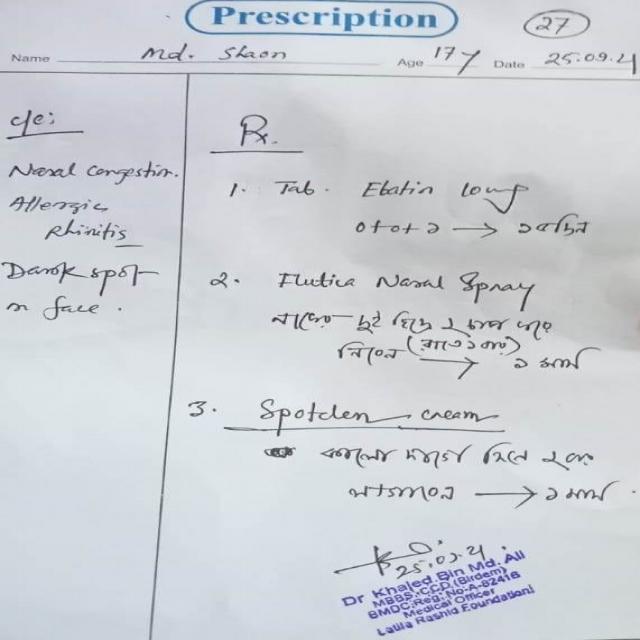 Prescription
27
Name Md. Shaon Age 17y Date 25.09.21
c/c:
Nasal congestion.
Allergic
Rhinitis
Dark spot
on face.
Rx.
1. Tab. Ebatin 10mg
0+0+১ →
2. Flutica Nasal Spray
দুই
নিবেন (রাতে ১বার) → ১ মাস
3. Spotclen cream
কালো দাগে দিনে ২বার
লাগাবেন → ১ মাস.
25.09.21
Dr Khaled Bin Md. Ali
MBBS, CCD (Birdem)
BMDC, Reg. No-A-82416
Medical Officer
Laila Rashid Foundation